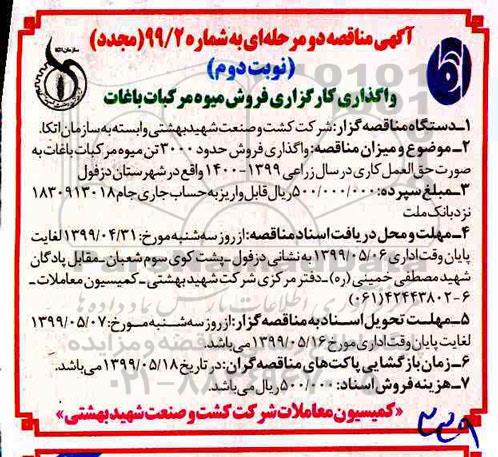 آگهی مناقصه دو مرحله‌ای به شماره ۹۹/۲ (مجدد)
(نوبت دوم)
واگذاری کارگزاری فروش میوه مرکبات باغات
سازمان اتکا
۱ـ دستگاه مناقصه گزار: شرکت کشت و صنعت شهید بهشتی وابسته به سازمان اتکا.
۲ـ موضوع و میزان مناقصه: واگذاری فروش حدود ۳۰۰۰ تن میوه مرکبات باغات به
صورت حق العمل کاری در سال زراعی ۱۳۹۹-۱۴۰۰ واقع در شهرستان دزفول
۳ـ مبلغ سپرده: ۵۰۰/۰۰۰/۰۰۰ ریال قابل واریز به حساب جاری جام ۱۸۳۰۹۱۳۰۱۸
نزد بانک ملت
۴ـ مهلت و محل دریافت اسناد مناقصه: از روز سه شنبه مورخ: ۱۳۹۹/۰۴/۳۱ لغایت
پایان وقت اداری ۱۳۹۹/۰۵/۰۶ به نشانی دزفول -پشت کوی سوم شعبان -مقابل پادگان
شهید مصطفی خمینی (ره) -دفتر مرکزی شرکت شهید بهشتی -کمیسیون معاملات -
۶-۴۲۴۴۳۸۰۲(۰۶۱)
۵ـ مهلت تحویل اسناد به مناقصه گزار: از روز سه شنبه مورخ: ۱۳۹۹/۰۵/۰۷
لغایت پایان وقت اداری مورخ ۱۳۹۹/۰۵/۱۶ می‌باشد.
۶ـ زمان بازگشایی پاکت‌های مناقصه گران: در تاریخ ۱۳۹۹/۰۵/۱۸ می‌باشد.
۷ـ هزینه فروش اسناد: ۵۰۰/۰۰۰ ریال می‌باشد.
«کمیسیون معاملات شرکت کشت و صنعت شهید بهشتی»